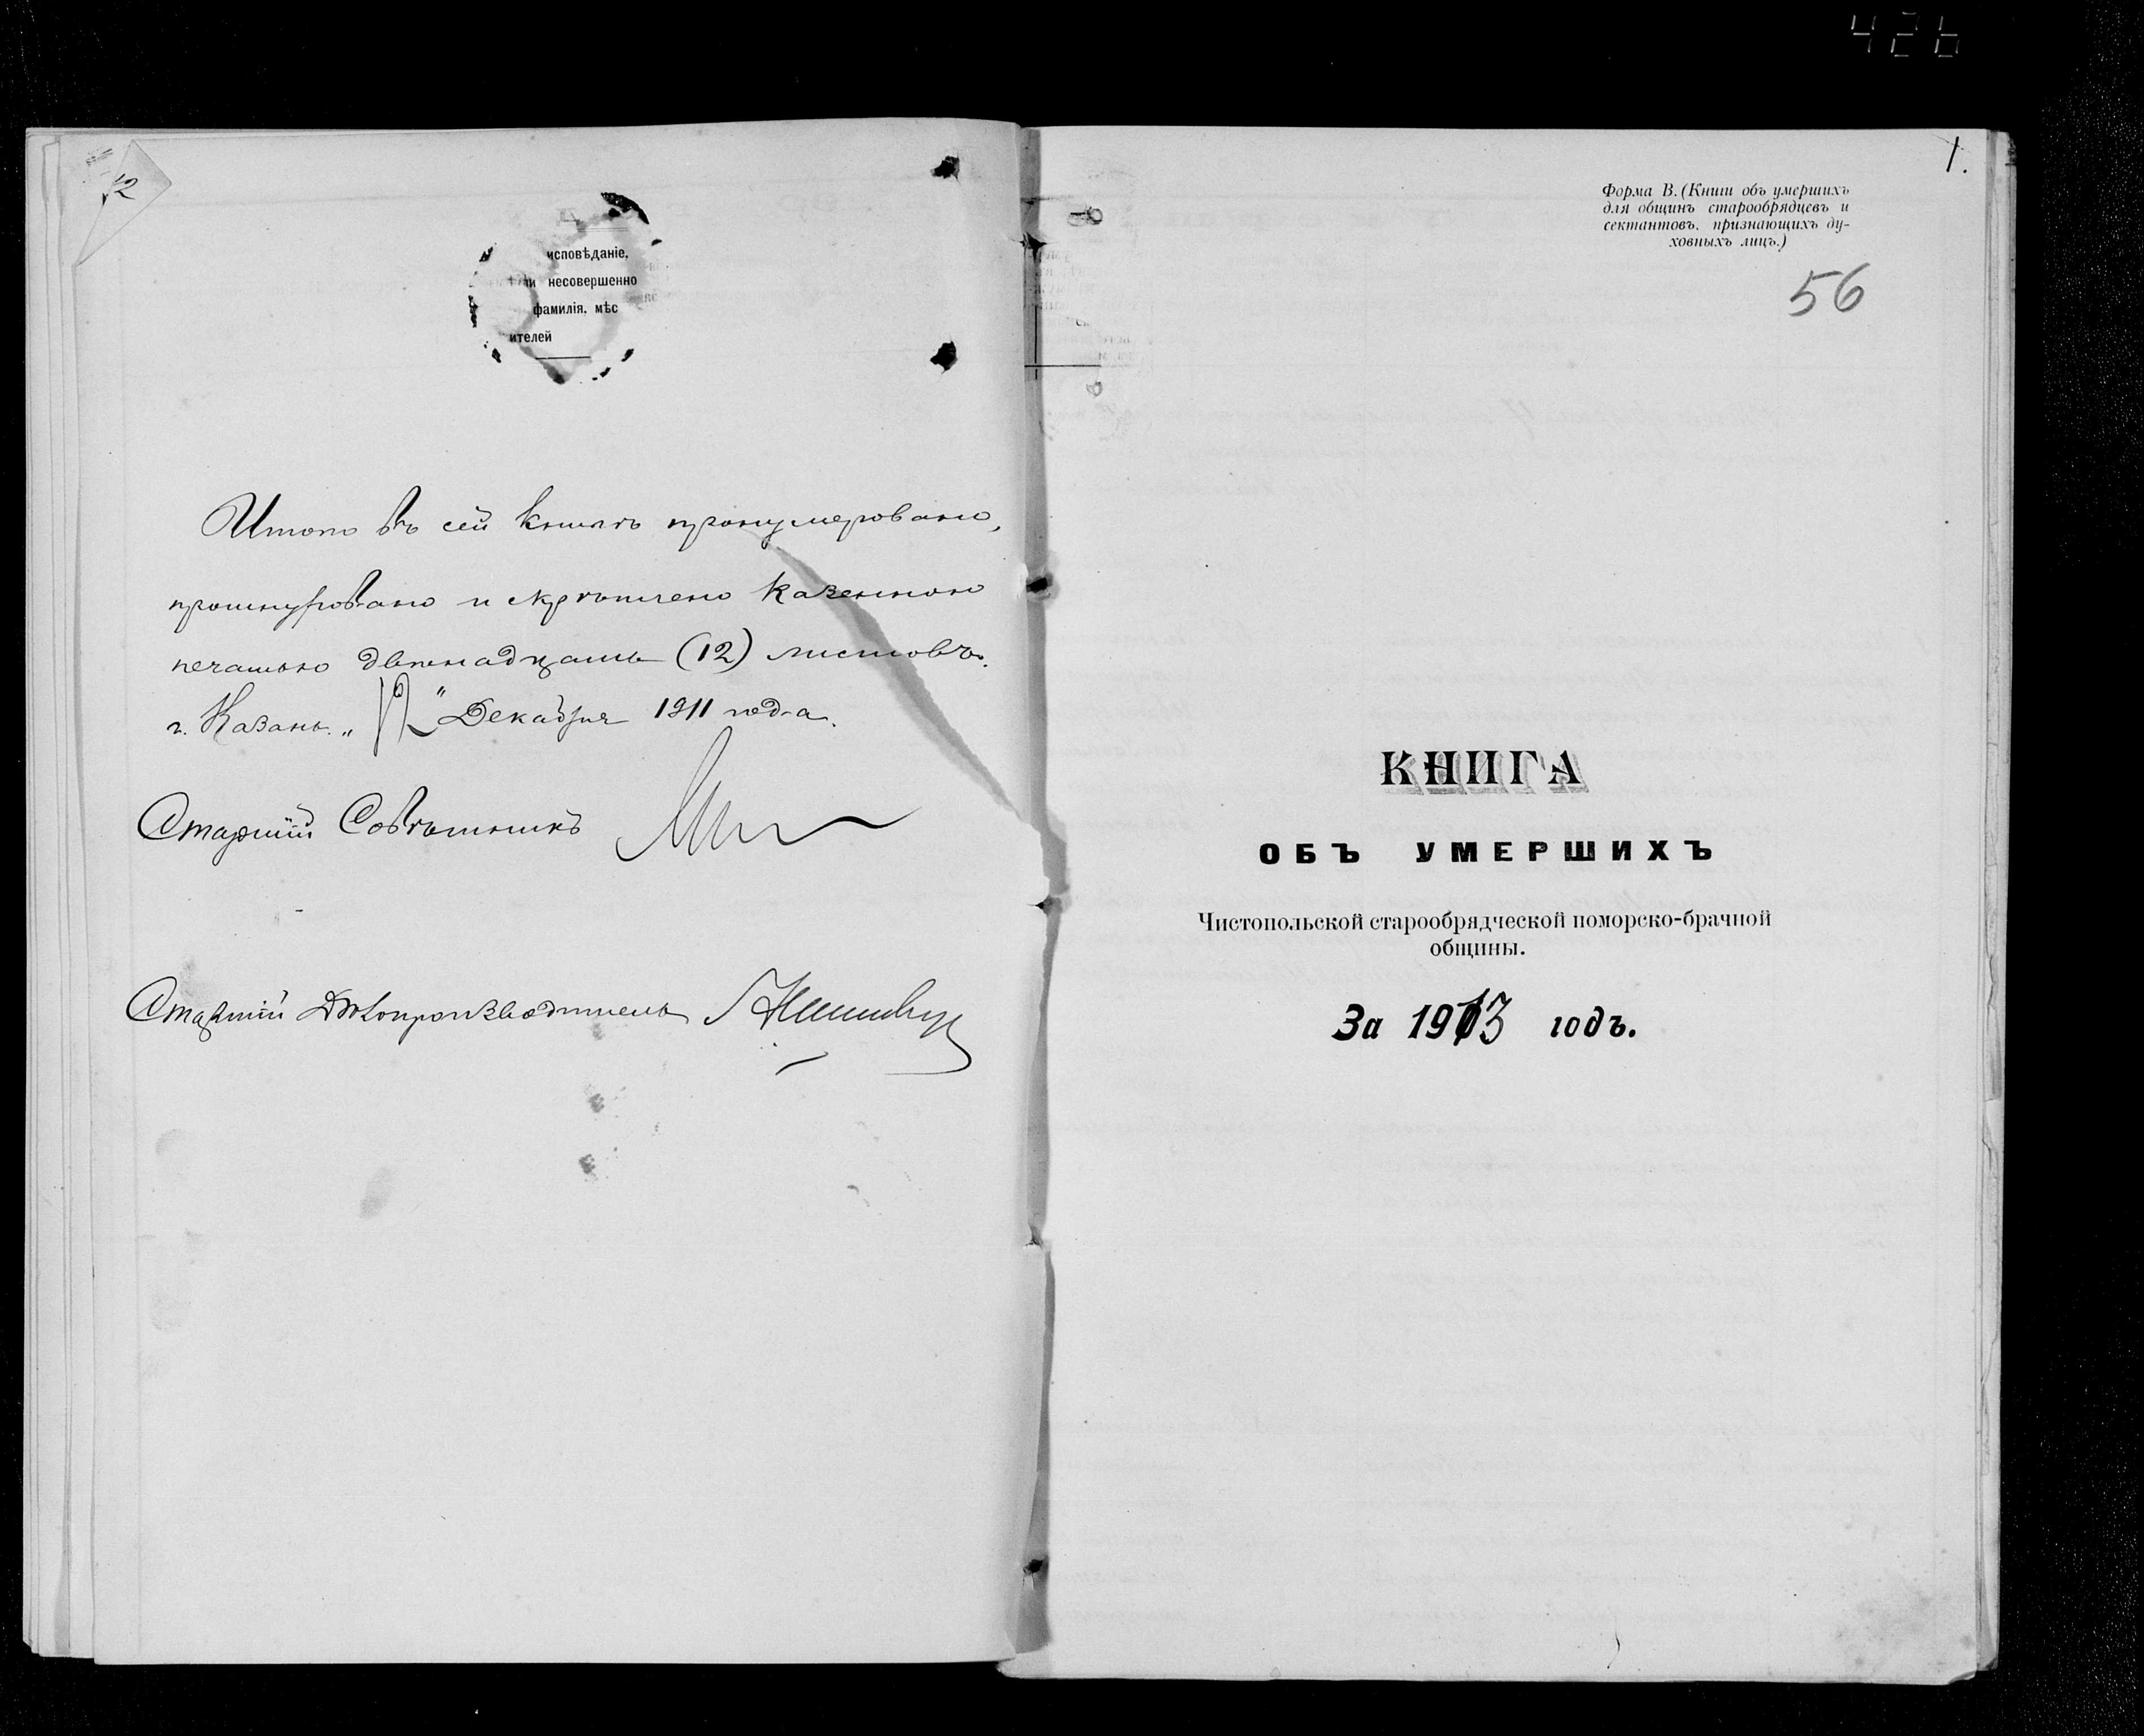 426
12
исповѣданіе,
ли несовершенно
фамилія, мѣс
ителей
Итого въ сей книгѣ пронумеровано,
прошнуровано и скрѣплено казенною
печатью двѣнадцать (12) листовъ.
г. Казань. „12" Декабря 1911 года.
Старшій Совѣтникъ
Старшій Дѣлопроизводитель
1.
Форма В. (Книги объ умершихъ
для общинъ старообрядцевъ и
сектантовъ, признающихъ ду-
ховныхъ лицъ.)
56
КНИГА
ОБЪ УМЕРШИХЪ
Чистопольской старообрядческой поморско-брачной
общины.
За 1913 годъ.